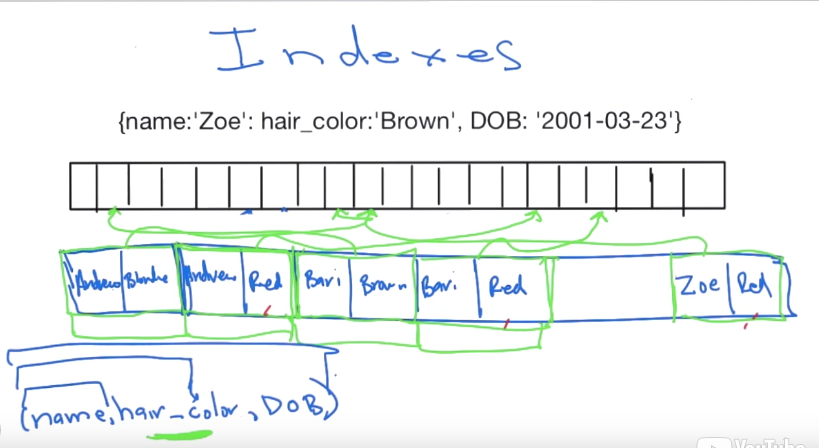 Indexes
{name:'Zoe': hair_color:'Brown', DOB: '2001-03-23'}
Andrew Blonde Andrew Red Bari Brown Bari Red Zoe Red
(name, hair_color, DOB)
YouTube